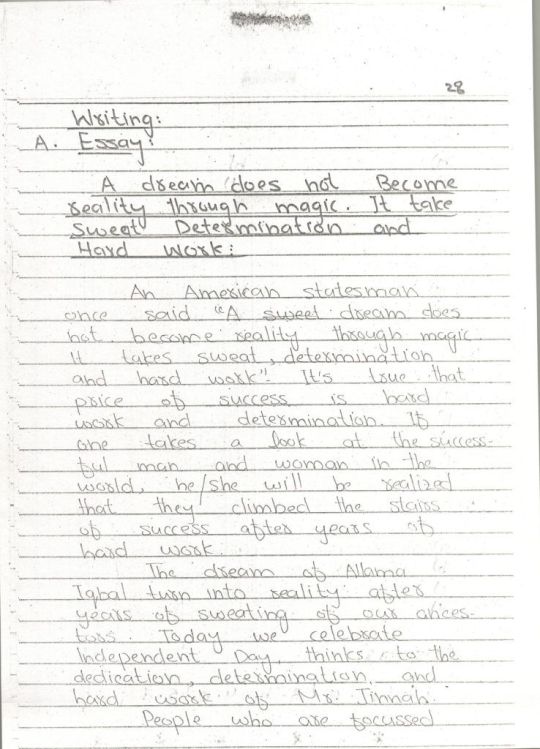 28
Writing:
A. Essay:
A dream does not Become
reality through magic. It take
Sweat Determination and
Hard work:
An American statesman
once said "A sweet dream does
not become reality through magic
It takes sweat, determination
and hard work". It's true that
price of success is hard
work and determination. If
one takes a look at the success-
ful man and woman in the
world, he/she will be realized
that they climbed the stairs
of success after years of
hard work.
The dream of Allama
Iqbal turn into reality after
years of sweating of our ances-
tors. Today we celebrate
Independent Day, thinks to the
dedication, determination, and
hard work of Mr. Jinnah.
People who are focussed